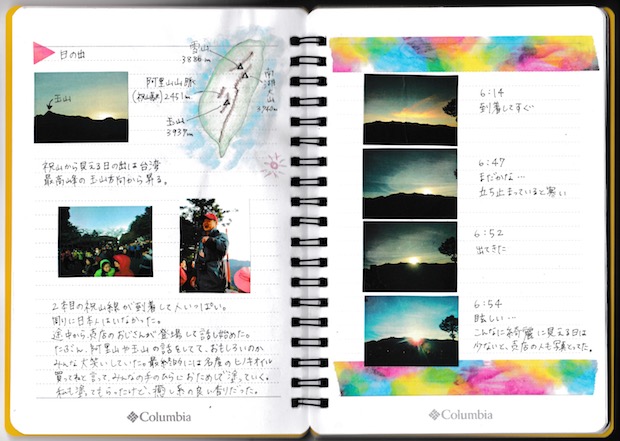 日の出
雪山
3886m
南湖大山
3740m
阿里山山脈
(祝山展) 2451m
玉山
3939m
玉山
祝山から見える日の出は台湾
最高峰の玉山方向から昇る。
2本目の祝山線が到着して人いっぱい。
周りに日本人はいなかった。
途中から売店のおじさんが登場して話し始めた。
たぶん、阿里山や玉山の話をしてて、おもしろいのか
みんな大笑いしていた。最終的には名産のヒノキオイル
買ってねと言って、みんなの手のひらにおためしで塗っていく。
私も塗ってもらったけど、癒し系の良い香りだった。
Columbia
6:14
到着してすぐ
6:47
まだかな…
立ち止まっていると寒い
6:52
出てきた
6:54
眩しい…
こんなに綺麗に見える日は
少ないと、売店の人も写真とってた。
Columbia